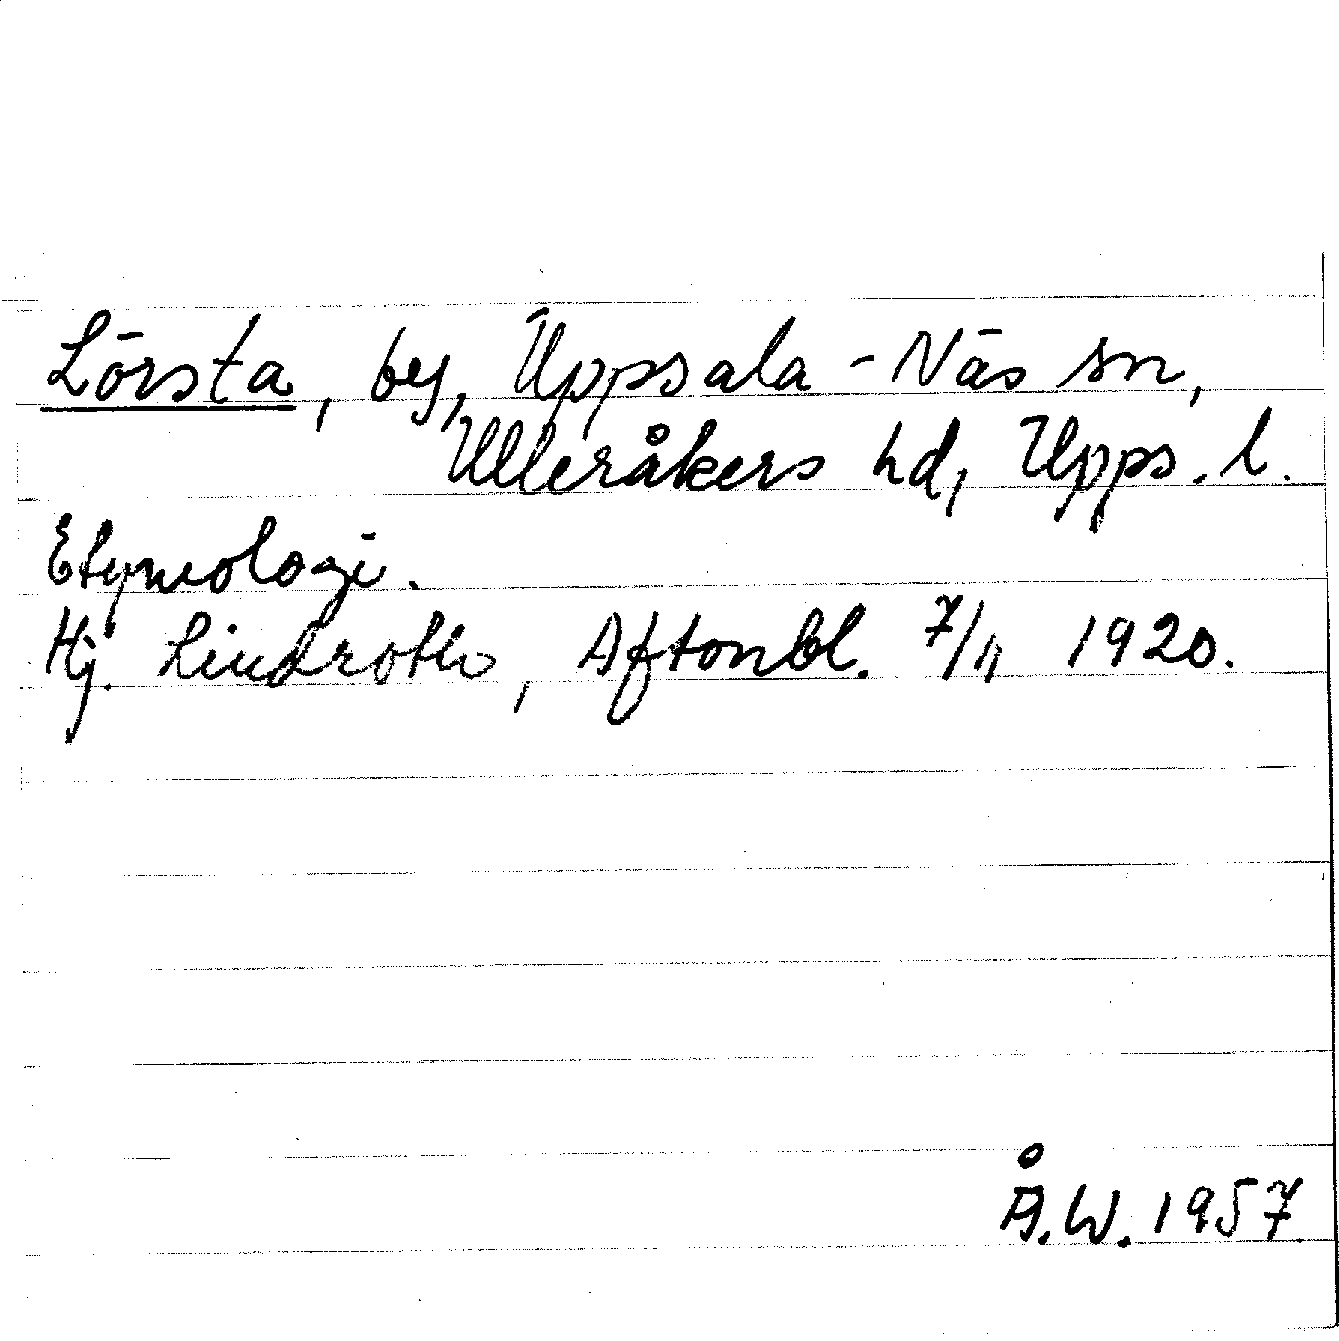 Lörsta, by, Uppsala-Näs sn,
Ulleråkers hd, Upps. l.
Etymologi.
Hj. Lindroth, Aftonbl. 7/11 1920.
Å.W. 1957.